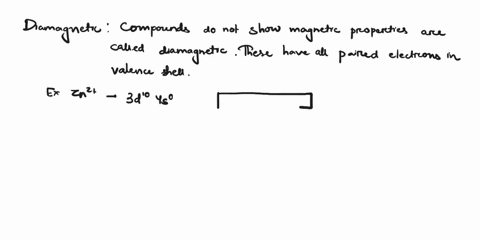 Diamagnetic : Compounds do not show magnetic properties are
called diamagnetic. These have all paired electrons in
valence shell.
Ex Zn²⁺ → 3d¹⁰ 4s⁰